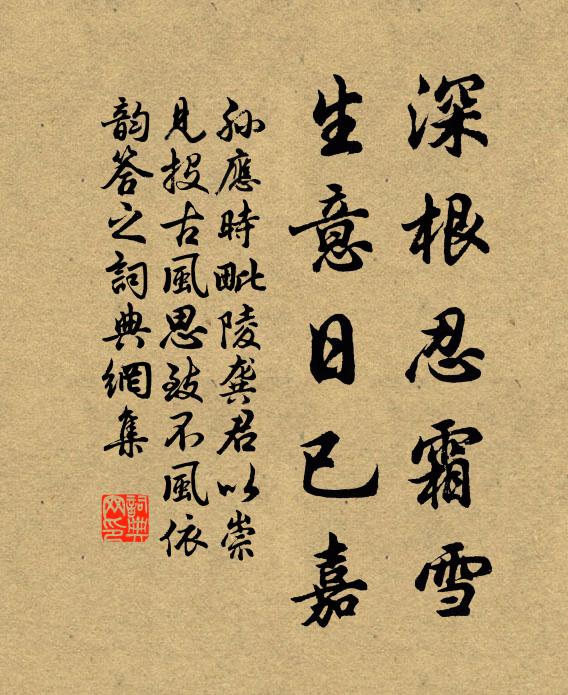 深根忍霜雪
生意日已嘉
孫應時毗陵龔君以崇
見投古風思致不風依
韵答之詞典網集
詞典网印